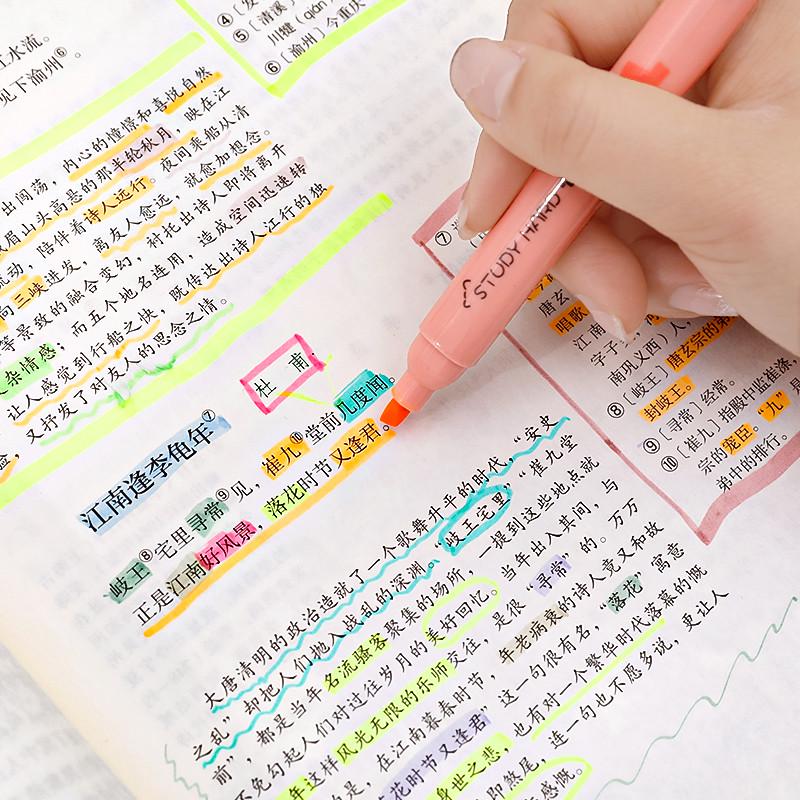 江水流。
见下渝州⑥。
④〔发
⑤〔清溪〕
川犍（qián
⑥〔渝州〕今重庆
出闯荡，内心的憧憬和喜悦自然
眉山头高悬的那半轮秋月，映在江
陪伴着诗人远行。夜间乘船从清
流动
向三峡进发，离友人愈远，就愈加想念。
等景致的融合变幻，衬托出诗人即将离开
；而五个地名连用，造成空间迅速转
杂情感；
让人感觉到行船之快，既传达出诗人江行的独
又抒发了对友人的思念之情。
江南逢李龟年⑦
杜甫
岐王⑧宅里寻常⑨见，崔九⑩堂前几度闻。
正是江南好风景，落花时节又逢君。
大唐清明的政治造就了一个歌舞升平的时代，“安史
之乱”却把人们抛入战乱的深渊。“岐王宅里”“崔九堂
前”，都是当年名流骚客聚集的场所，一提到这些地点就
不免勾起人们对过往岁月的美好回忆。当年出入其间，与
年这样风光无限的乐师交往，是很“寻常”的。万万
是，在江南暮春时节，年老病衰的诗人竟又和故
花时节又逢君”这一句很有名，“落花”寓意
身世之悲，也有对一个繁华时代落幕的慨
即煞尾，连一句也不愿多说，更让人
感慨。
STUDY HARD
⑦
唐玄
唱歌
江南
字子
南巩义西）人，
⑧〔岐王〕唐玄宗的弟
封岐王。
⑨〔寻常〕经常。
⑩〔崔九〕指殿中监崔涤，
宗的宠臣。“九”是
弟中的排行。